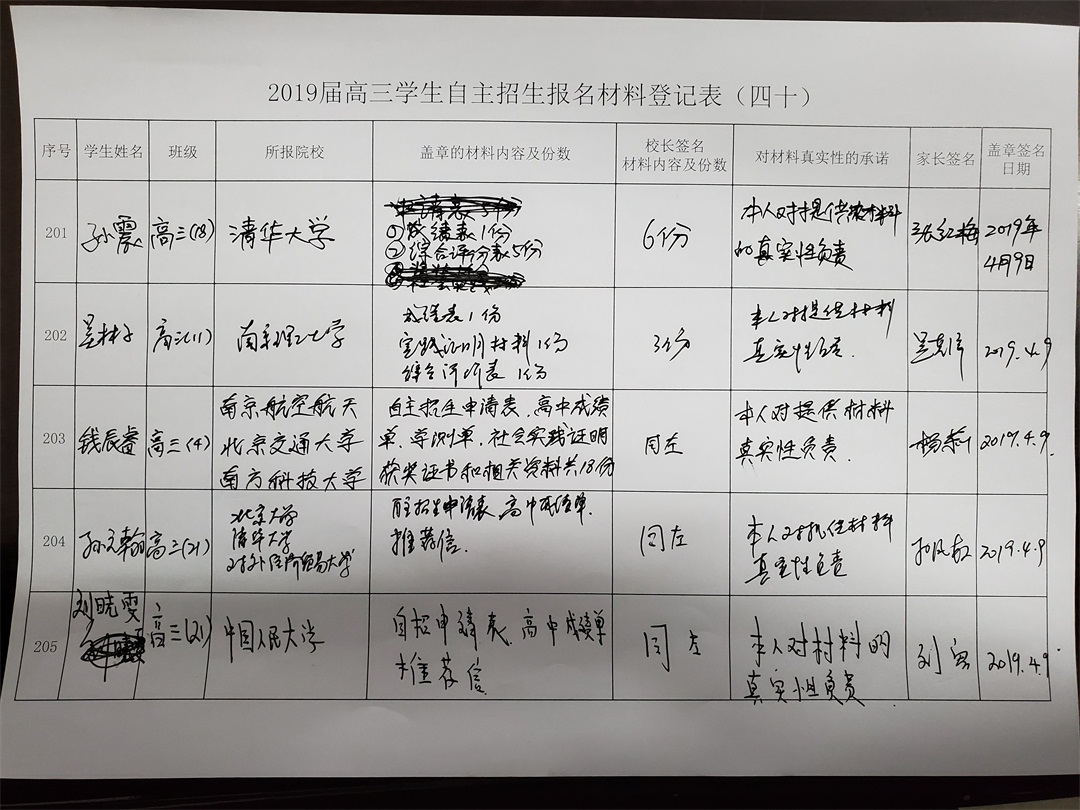 2019届高三学生自主招生报名材料登记表（四十）
序号 学生姓名 班级 所报院校 盖章的材料内容及份数 校长签名 材料内容及份数 对材料真实性的承诺 家长签名 盖章签名 日期
201 孙震 高三(18) 清华大学
①成绩表1份
②综合评价表5份
6份
本人对提供材料
的真实性负责
张红梅
2019年
4月9日
202
高三(11)
南京理工大学
成绩表1份
实践证明材料1份
综合评价表1份
3份
本人对提供材料
真实性负责.
2019.4.9
203 钱辰睿 高三(4)
南京航空航天
北京交通大学
南方科技大学
自主招生申请表、高中成绩
单、学测单、社会实践证明
获奖证书和相关资料共18份
同左
本人对提供材料
真实性负责.
2019.4.9.
204
高三(21)
北京大学
清华大学
对外经济贸易大学
自主招生申请表、高中成绩单、
推荐信.
同左
本人对提供材料
真实性负责
2019.4.9
205 刘晓雯
高三(21)
中国人民大学
自招申请表、高中成绩单
推荐信
同左
本人对材料的
真实性负责
2019.4.9